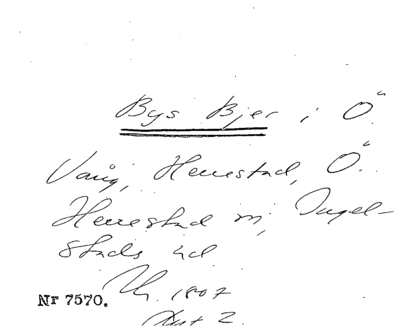 Bys Bjer i Ö.
Vång, Herrestad, Ö.
Herrestad sn, Ingel-
stads hd
Nr 7570.
1807
2.